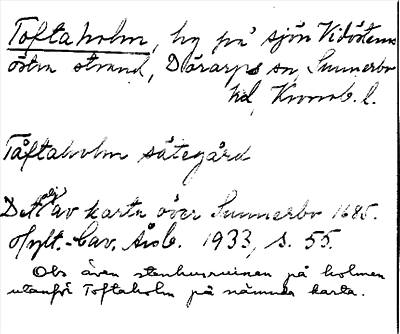 Toftaholm, by på sjön Vidösterns
östra strand, Dörarps sn, Sunnerbo
hd, Kronob. l.
Tåftaholm sätegård
Detalj av karta över Sunnerbo 1685.
Hylt.-Cav. Årsb. 1933, s. 55.
Obs även stenhusruinen på holmen
utanför Toftaholm på nämnda karta.